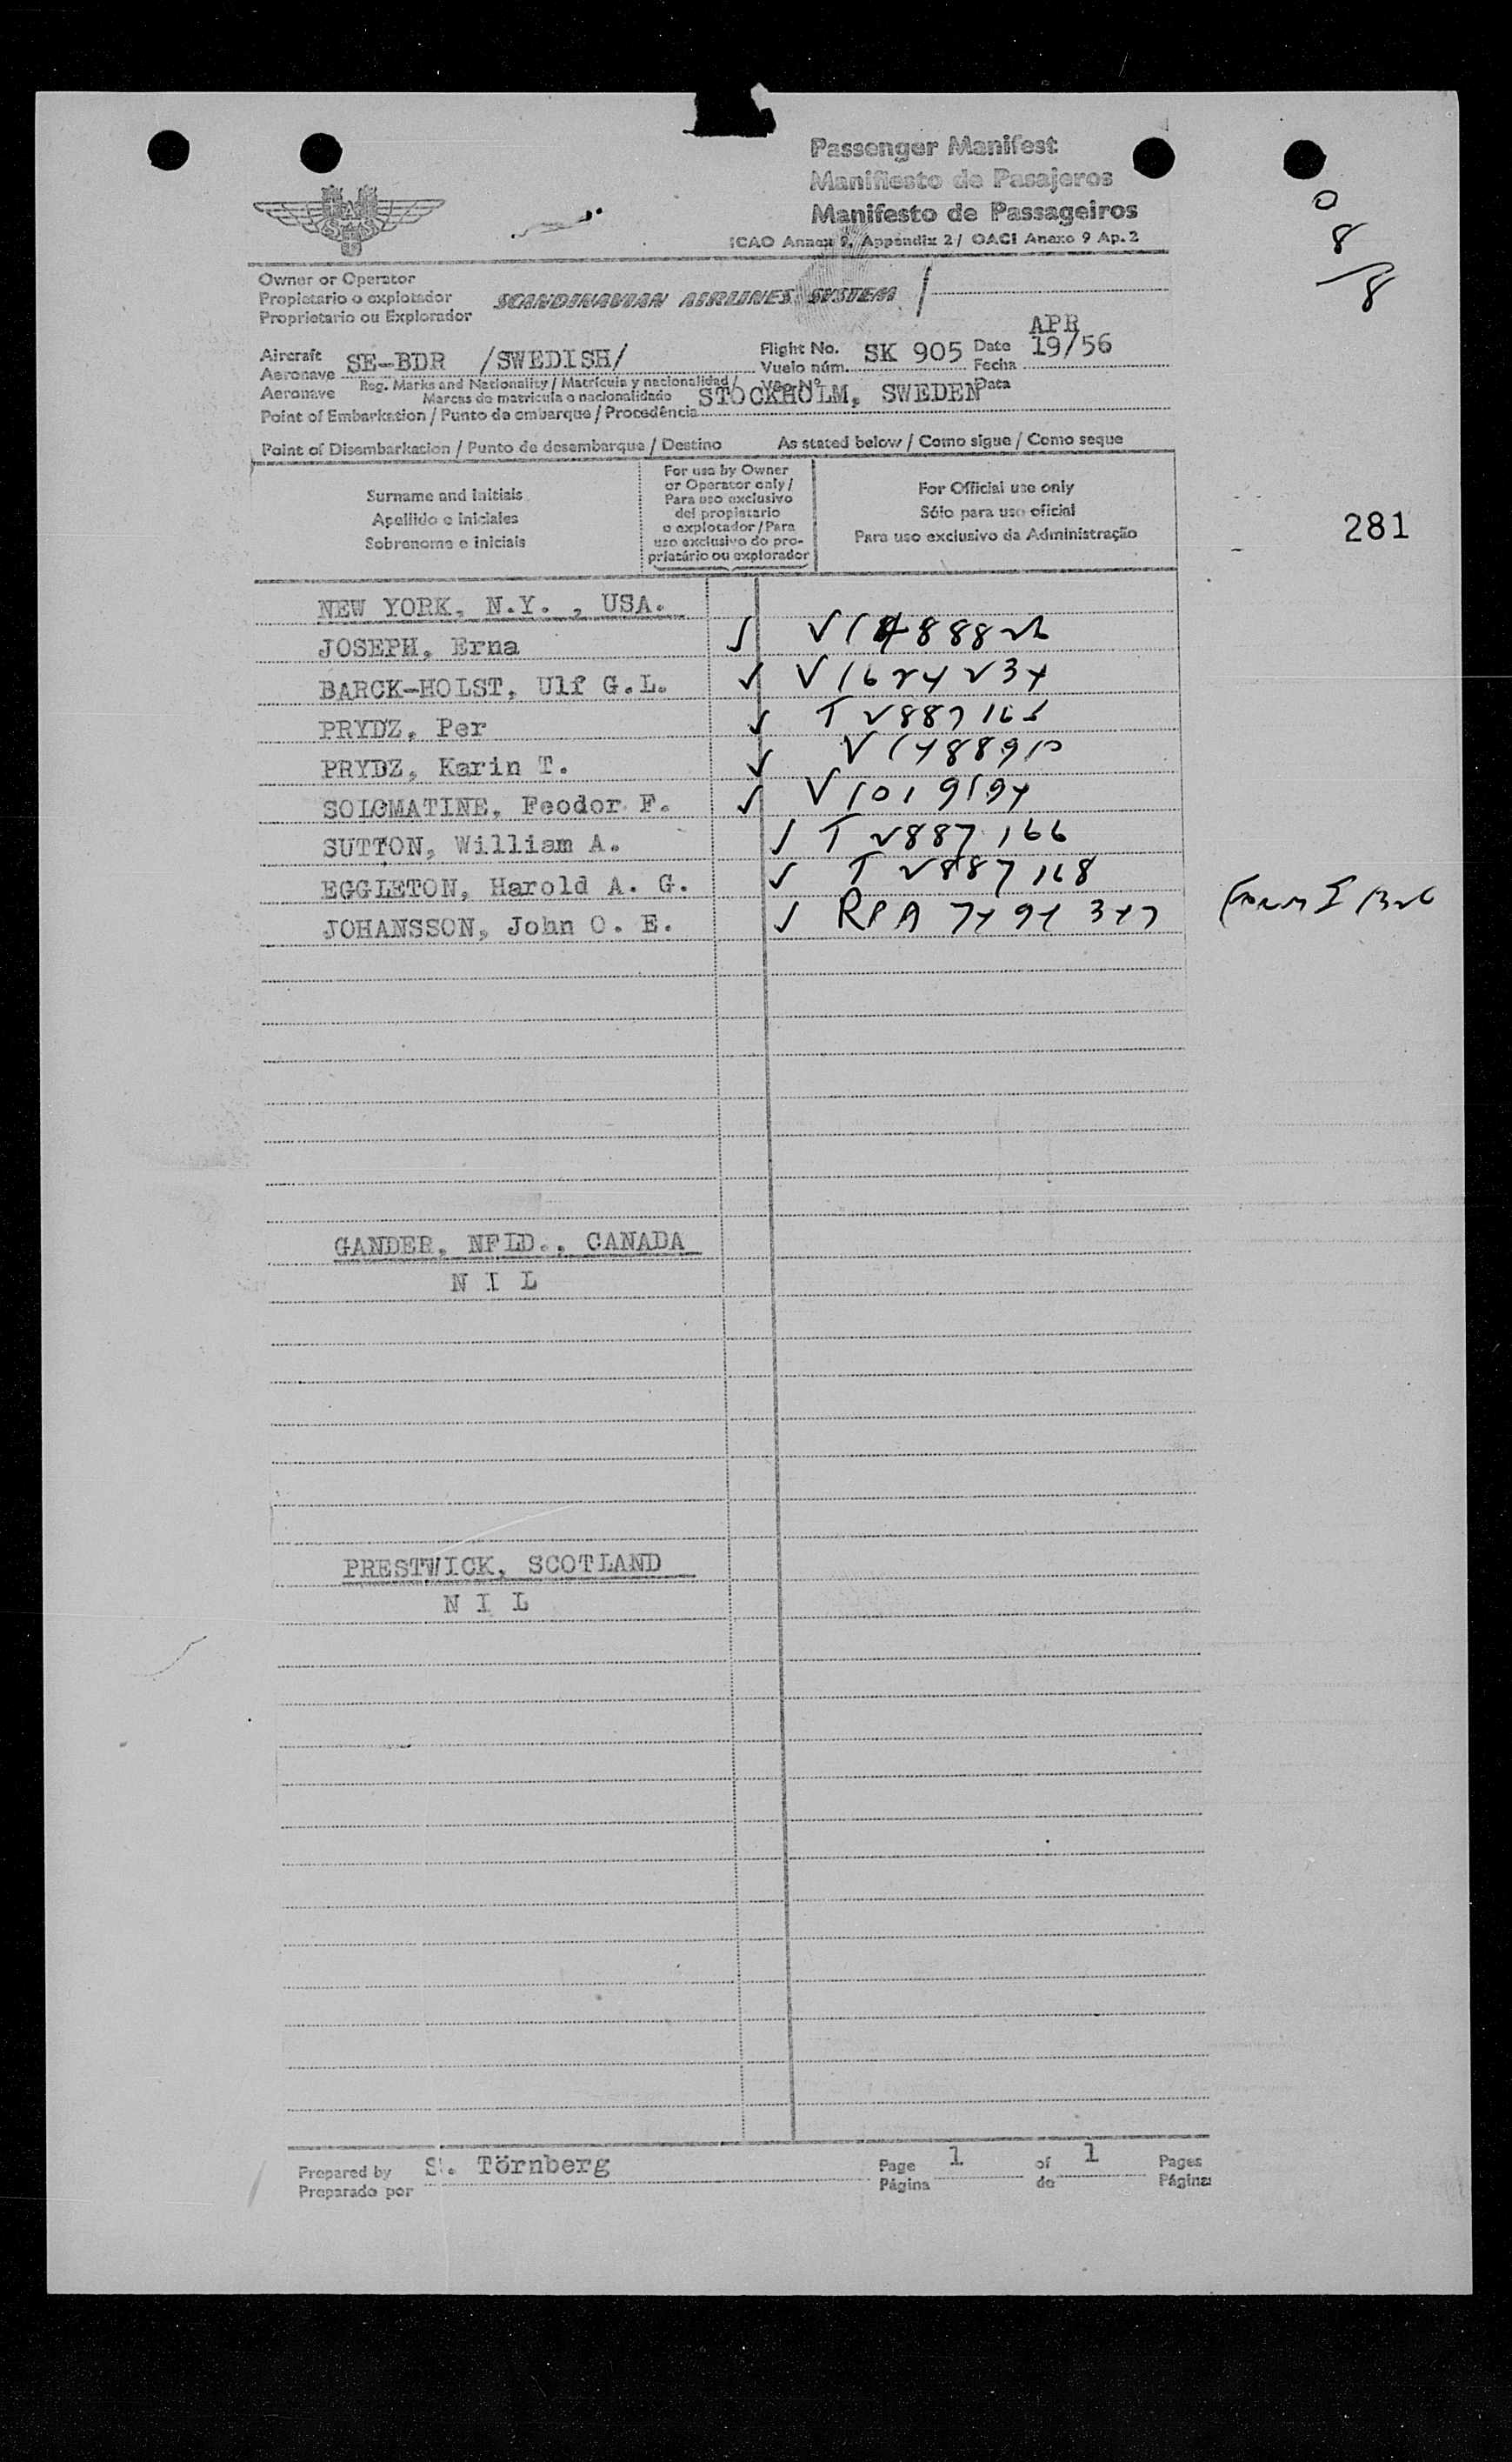 Passenger Manifest
Manifiesto de Pasajeros
Manifesto de Passageiros
ICAO Annex 9, Appendix 2 / OACI Anexo 9 Ap. 2
0
8
8
SAS
Owner or Operator
Propietario o explotador
Proprietario ou Explorador
SCANDINAVIAN AIRLINES SYSTEM
Aircraft
Aeronave
Aeronave
SE-BDR /SWEDISH/
Reg. Marks and Nationality / Matrícula y nacionalidad /
Marcas de matricula e nacionalidade
Flight No.
Vuelo núm.
Vôo Nº
SK 905
Date
Fecha
Data
APR
19/56
Point of Embarkation / Punto de embarque / Procedência
STOCKHOLM, SWEDEN
Point of Disembarkation / Punto de desembarque / Destino As stated below / Como sigue / Como segue
Surname and initials
Apellido e iniciales
Sobrenome e iniciais
For use by Owner
or Operator only /
Para uso exclusivo
del propietario
o explotador / Para
uso exclusivo do pro-
prietário ou explorador
For Official use only
Sólo para uso oficial
Para uso exclusivo da Administração
281
NEW YORK, N.Y. , USA.
JOSEPH, Erna
BARCK-HOLST, Ulf G.L. V1624234
PRYDZ, Per
PRYDZ, Karin T. V1488910
SOLOMATINE, Feodor F. V1019194
SUTTON, William A. T 2887166
EGGLETON, Harold A. G. T 2887168
JOHANSSON, John O. E.
GANDER, NFLD., CANADA
N I L
PRESTWICK, SCOTLAND
N I L
Prepared by
Preparado por
S. Törnberg
Page
Página
1
of
de
1
Pages
Páginas